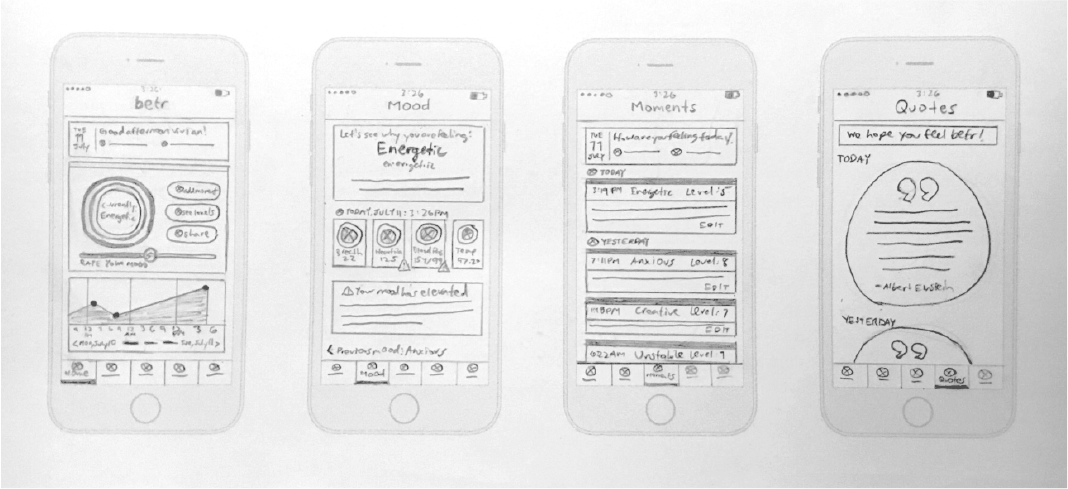 betr
TUE
11
July
Good afternoon Vivian!
Currently
Energetic
add moment
see levels
share
RATE YOUR MOOD
Home
3:26
Mood
Let's see why you are feeling:
Energetic
energetic
TODAY, JULY 11: 3:26PM
Your mood has elevated
< Previous mood: Anxious
Mood
3:26
Moments
TUE
11
JULY
How are you feeling today?
TODAY
3:19 PM Energetic Level: 5
EDIT
YESTERDAY
7:11PM Anxious Level: 8
EDIT
Creative Level: 7
EDIT
Unstable Level: 9
Moments
3:26
Quotes
We hope you feel betr!
TODAY
- Albert Einstein
YESTERDAY
Quotes